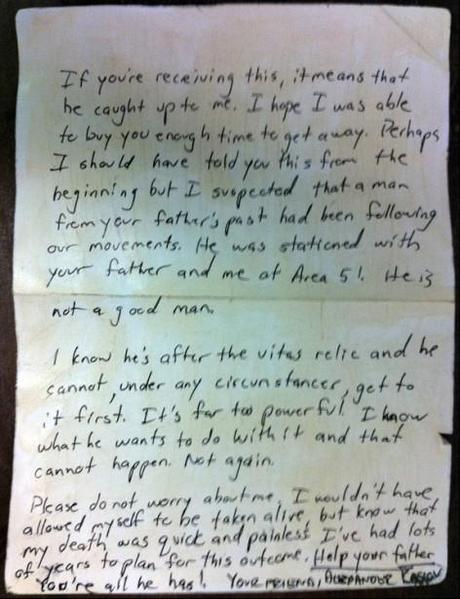 If you're receiving this, it means that
he caught up to me. I hope I was able
to buy you enough time to get away. Perhaps
I should have told you this from the
beginning but I suspected that a man
from your father's past had been following
our movements. He was stationed with
your father and me at Area 51. He is
not a good man.
I know he's after the vitas relic and he
cannot, under any circumstances, get to
it first. It's far too powerful. I know
what he wants to do with it and that
cannot happen. Not again.
Please do not worry about me. I wouldn't have
allowed myself to be taken alive, but know that
my death was quick and painless. I've had lots
of years to plan for this outcome. Help your father
You're all he has! Your friend, Alexander